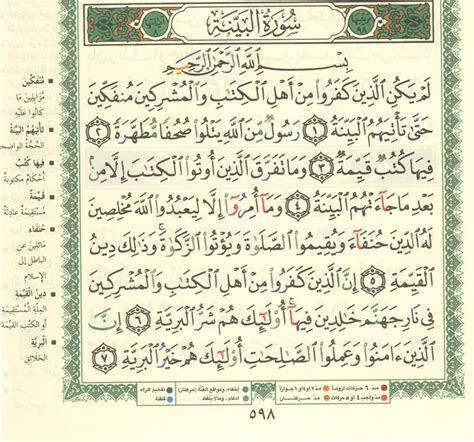 سُورَةُ البَيِّنَةِ
بِسْمِ اللَّهِ الرَّحْمَٰنِ الرَّحِيمِ
لَمْ يَكُنِ الَّذِينَ كَفَرُوا مِنْ أَهْلِ الْكِتَابِ وَالْمُشْرِكِينَ مُنفَكِّينَ
حَتَّىٰ تَأْتِيَهُمُ الْبَيِّنَةُ ١ رَسُولٌ مِّنَ اللَّهِ يَتْلُوا صُحُفًا مُّطَهَّرَةً ٢
فِيهَا كُتُبٌ قَيِّمَةٌ ٣ وَمَا تَفَرَّقَ الَّذِينَ أُوتُوا الْكِتَابَ إِلَّا مِنْ
بَعْدِ مَا جَاءَتْهُمُ الْبَيِّنَةُ ٤ وَمَا أُمِرُوا إِلَّا لِيَعْبُدُوا اللَّهَ مُخْلِصِينَ
لَهُ الدِّينَ حُنَفَاءَ وَيُقِيمُوا الصَّلَوٰةَ وَيُؤْتُوا الزَّكَوٰةَ وَذَٰلِكَ دِينُ
الْقَيِّمَةِ ٥ إِنَّ الَّذِينَ كَفَرُوا مِنْ أَهْلِ الْكِتَابِ وَالْمُشْرِكِينَ
فِي نَارِ جَهَنَّمَ خَالِدِينَ فِيهَا أُولَٰئِكَ هُمْ شَرُّ الْبَرِيَّةِ ٦ إِنَّ
الَّذِينَ ءَامَنُوا وَعَمِلُوا الصَّالِحَاتِ أُولَٰئِكَ هُمْ خَيْرُ الْبَرِيَّةِ ٧
مُنفَكِّينَ
مُزَايِلِينَ مَا
كَانُوا عَلَيْهِ
تَأْتِيَهُمُ الْبَيِّنَةُ
الحُجَّةُ الواضحة
فِيهَا كُتُبٌ
أَحْكَامٌ مَكْتُوبَةٌ
قَيِّمَةٌ
مُسْتَقِيمَةٌ عَادِلَةٌ
حُنَفَاءَ
مَائِلِينَ عَنِ
الباطِلِ إلى
الإسلام
دِينُ الْقَيِّمَةِ
المِلَّةِ المُسْتَقِيمَةِ
أو الكُتُبِ القَيِّمَةِ
الْبَرِيَّةِ
الخَلَائِقِ
مدّ ٦ حركات لزوماً مدّ ٢ او ٤ او ٦ جوازاً إخفاء، ومواقع الغُنَّة (حركتان) تفخيم الراء
مدّ واجب ٤ او ٥ حركات مدّ حركتان ادغام، وما لا يُلفظ قلقلة
٥٩٨